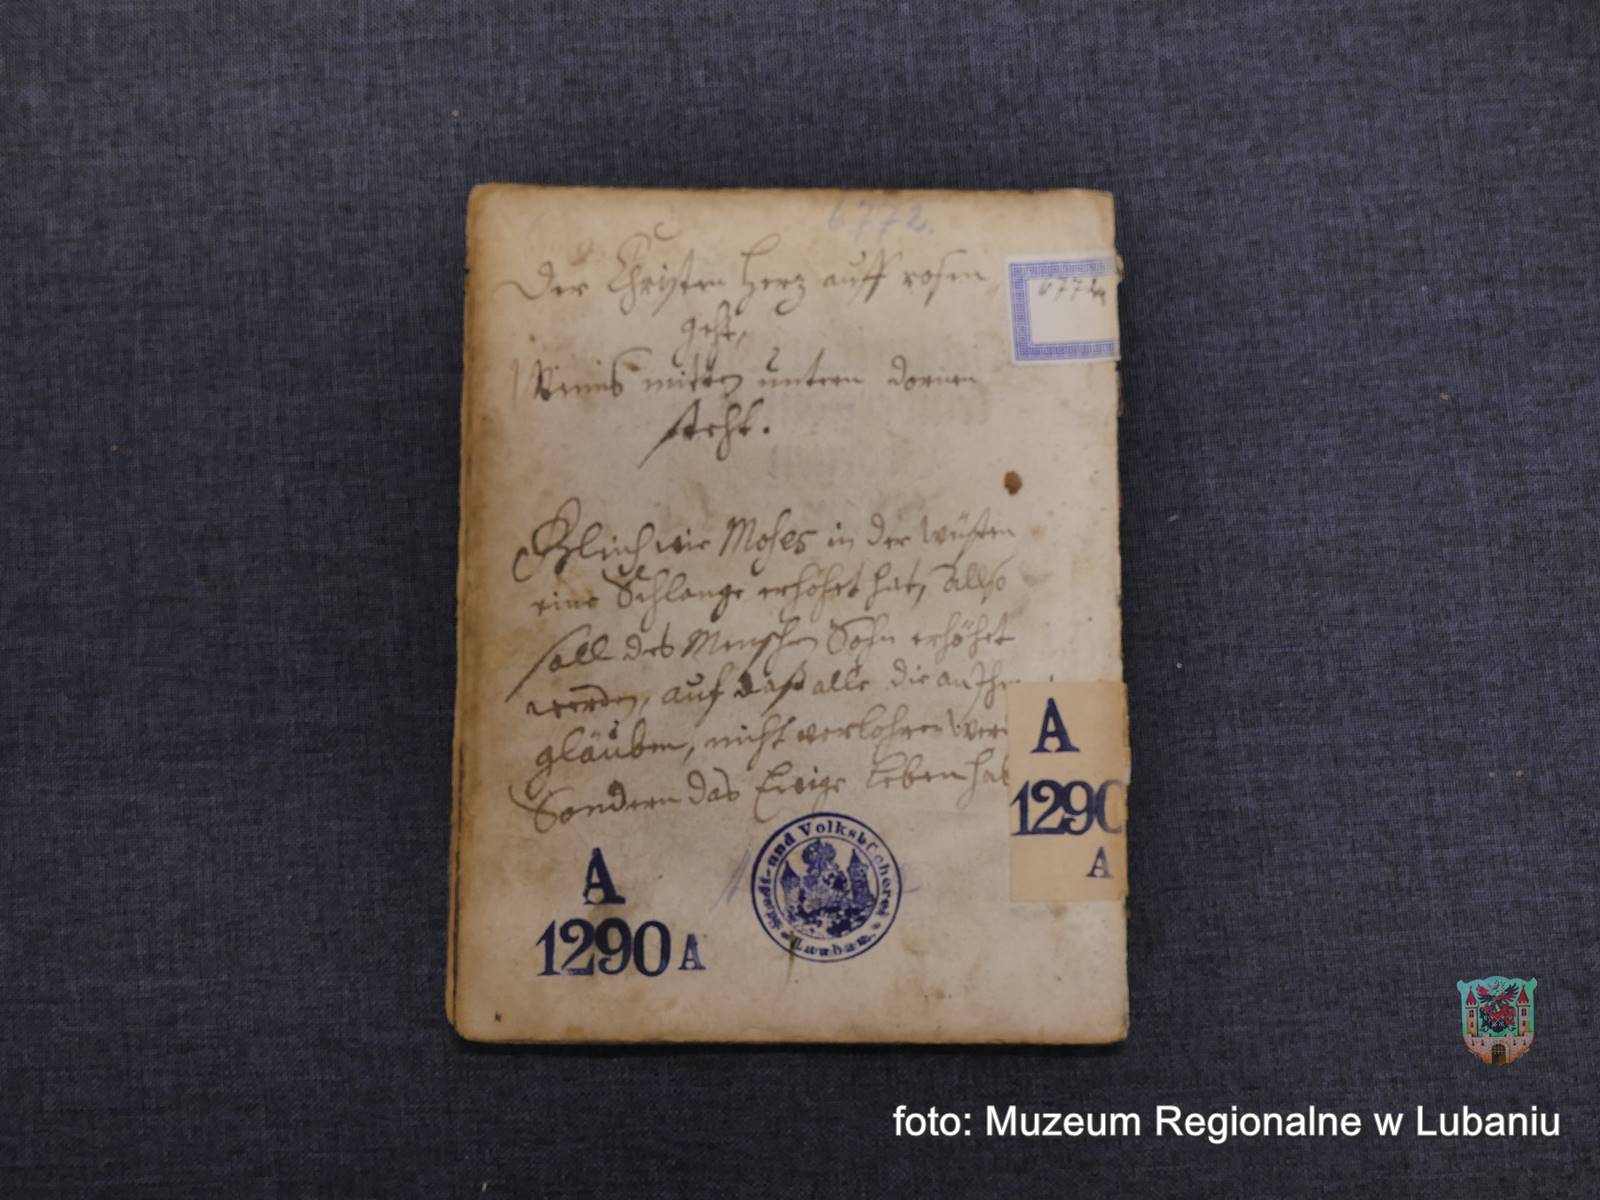 6772.
Der Christen Hertz auff rosen
geht,
Wenns mitten untern dornen
steht.
6772
Gleich wie Moses in der Wüsten
eine Schlange erhöhet hat, also
soll des Menschen Sohn erhöhet
werden, auf daß alle die an Ihn
gläuben, nicht verlohren wer
Sondern das Ewige Leben hab
A
1290
A
A
1290 A
Stadt- und Volksbücherei
Lauban.
foto: Muzeum Regionalne w Lubaniu